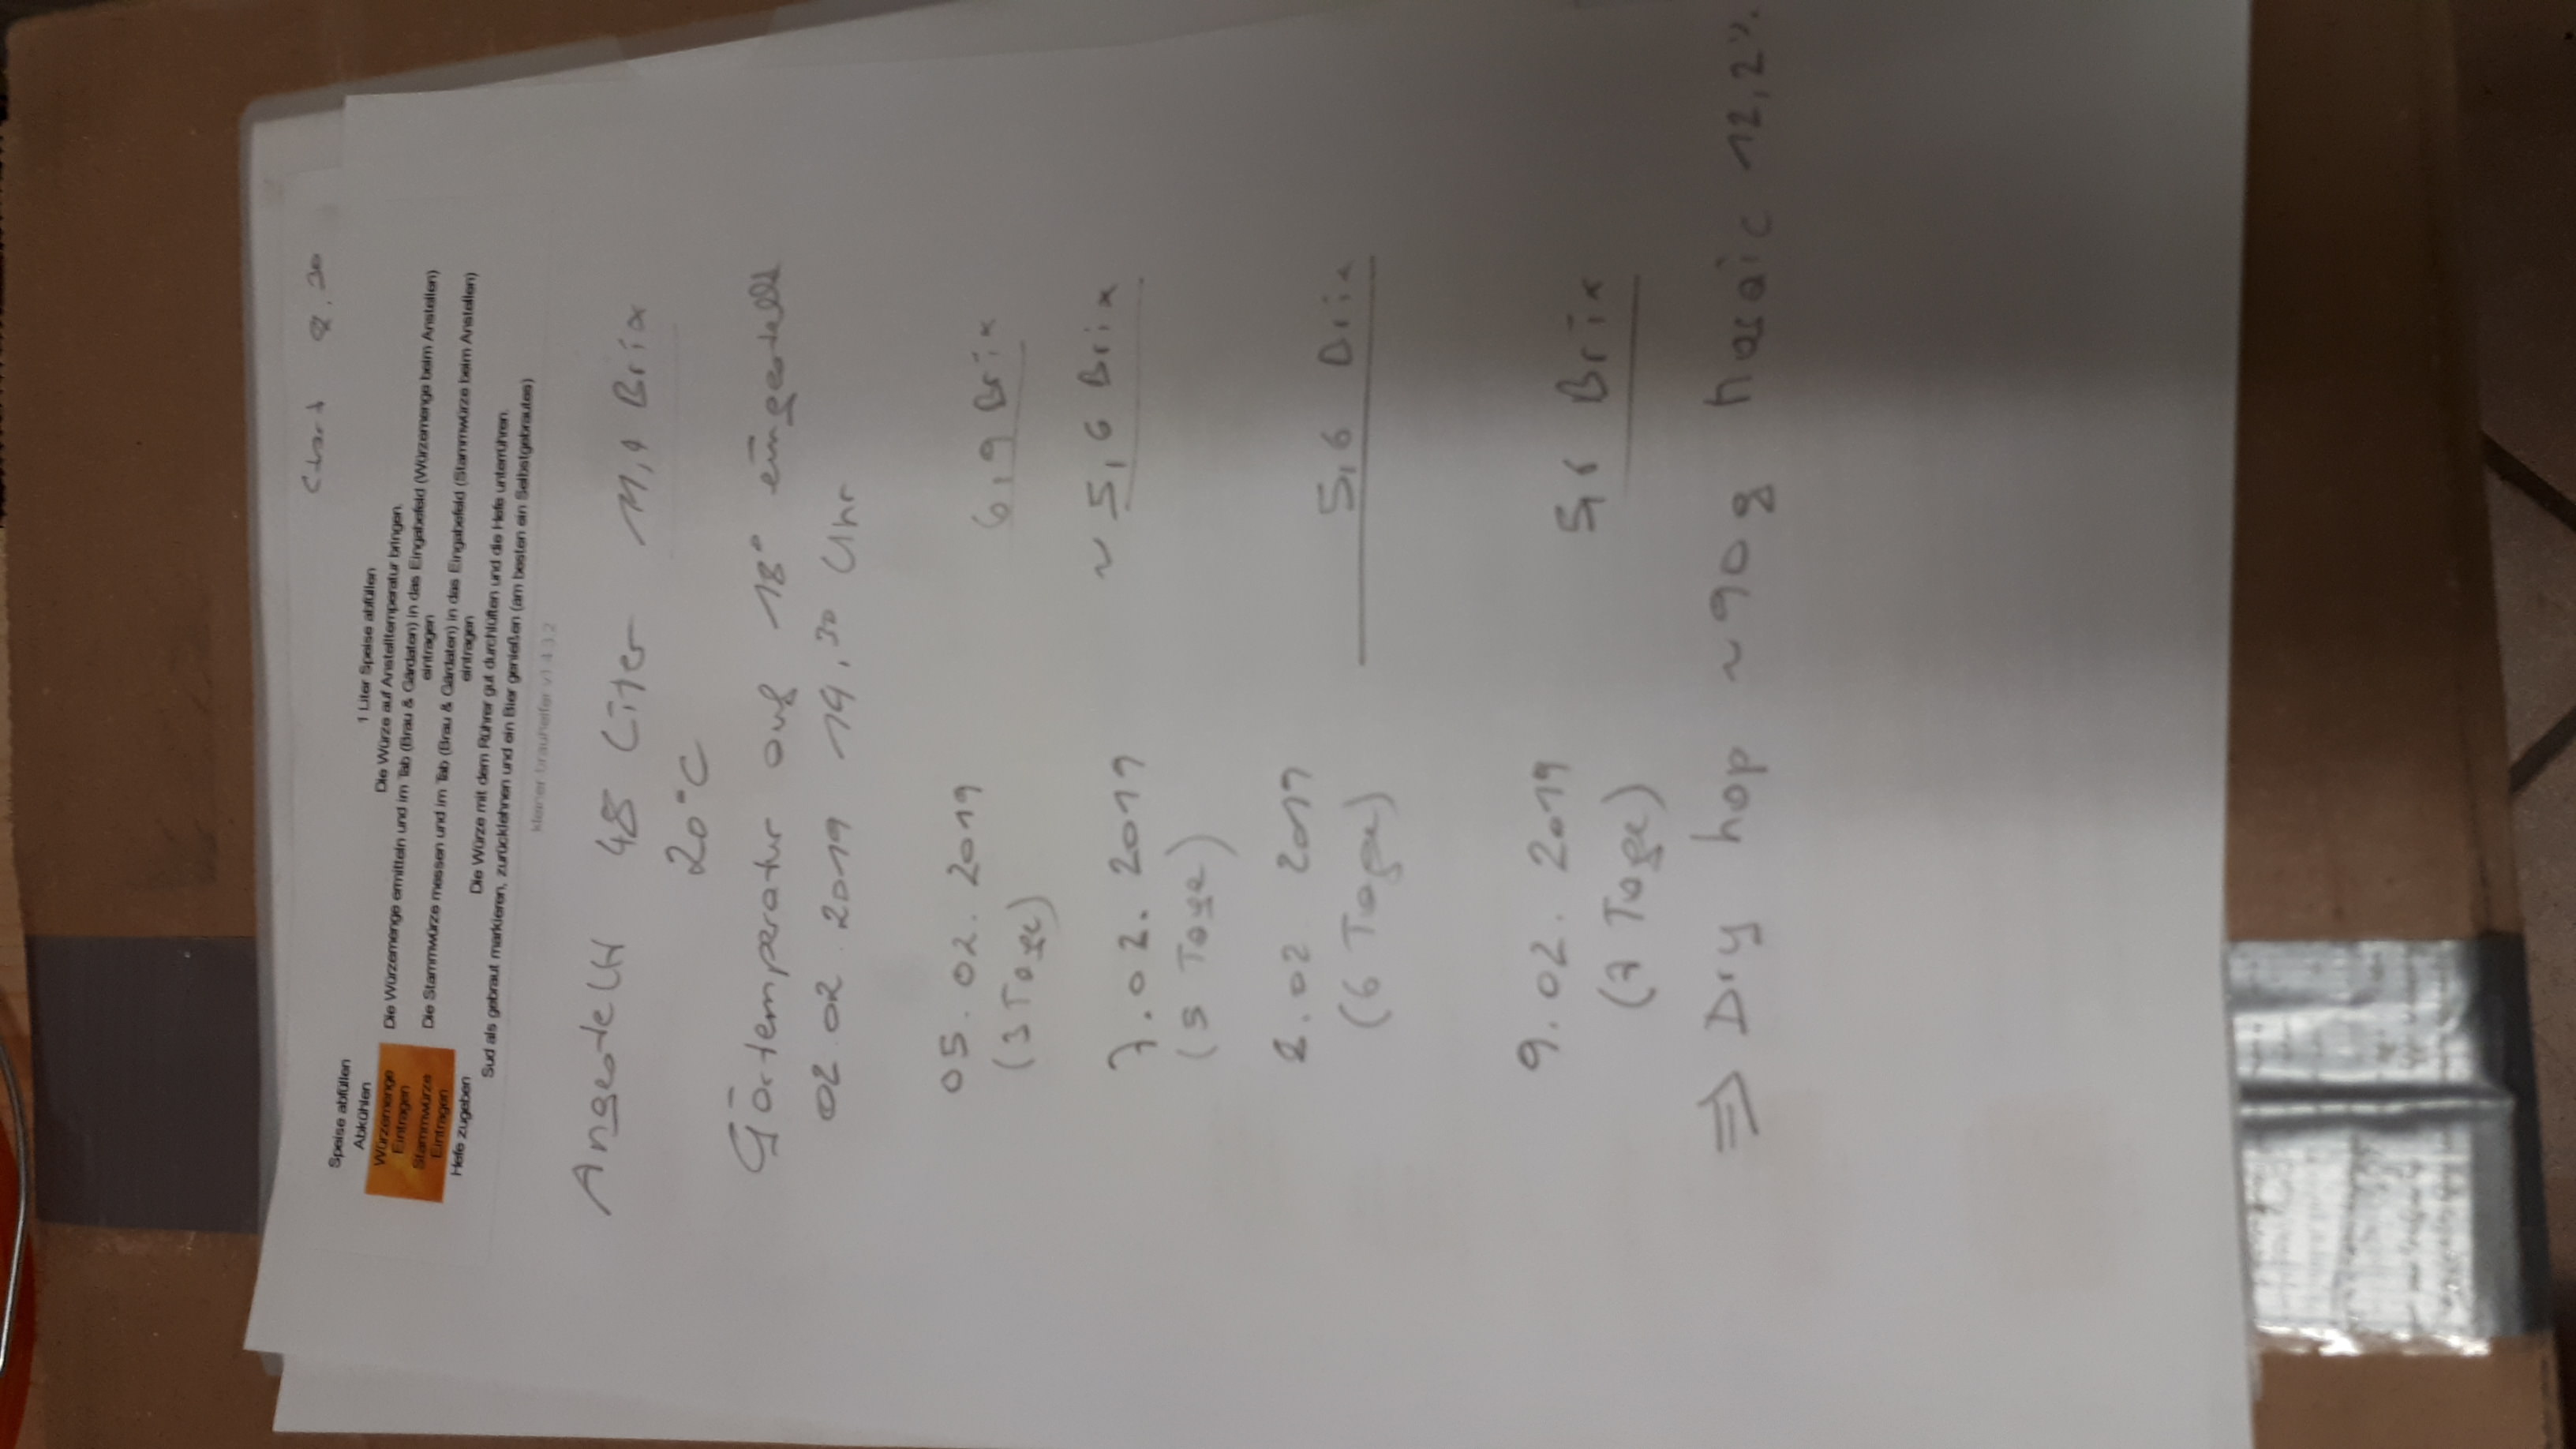 Start 8.30
Speise abfüllen 1 Liter Speise abfüllen
Abkühlen Die Würze auf Anstelltemperatur bringen.
Würzemenge Eintragen Die Würzemenge ermitteln und im Tab (Brau & Gärdaten) in das Eingabefeld (Würzemenge beim Anstellen)
eintragen
Stammwürze Eintragen Die Stammwürze messen und im Tab (Brau & Gärdaten) in das Eingabefeld (Stammwürze beim Anstellen)
eintragen
Hefe zugeben Die Würze mit dem Rührer gut durchlüften und die Hefe unterrühren.
Sud als gebraut markieren, zurücklehnen und ein Bier genießen (am besten ein Selbstgebrautes)
kleiner-brauhelfer v1.4.3.2
Angestellt 48 Liter 11,9 Brix
20°C
Gärtemperatur auf 18° eingestellt
02.02.2019 19,30 Uhr
05.02.2019 6,9 Brix
(3 Tage)
7.02.2019 ~ 5,6 Brix
(5 Tage)
8.02 2019 5,6 Brix
(6 Tage)
9.02.2019 5,6 Brix
(7 Tage)
⇒ Dry hop ~ 90 g Mosaic 12,2%